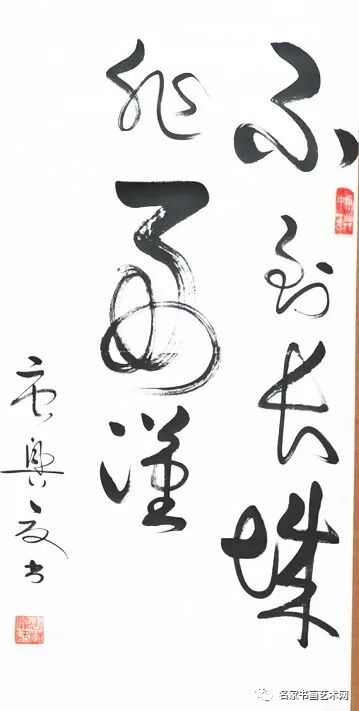 不到长城
非好漢
興 书
名家书画艺术网